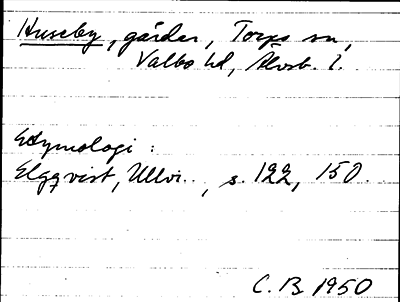 Huseby, gårdar, Torps sn,
Valbo hd, Älvsb. l.
Etymologi :
Elgqvist, Ullvi.., s. 122, 150.
C. B. 1950